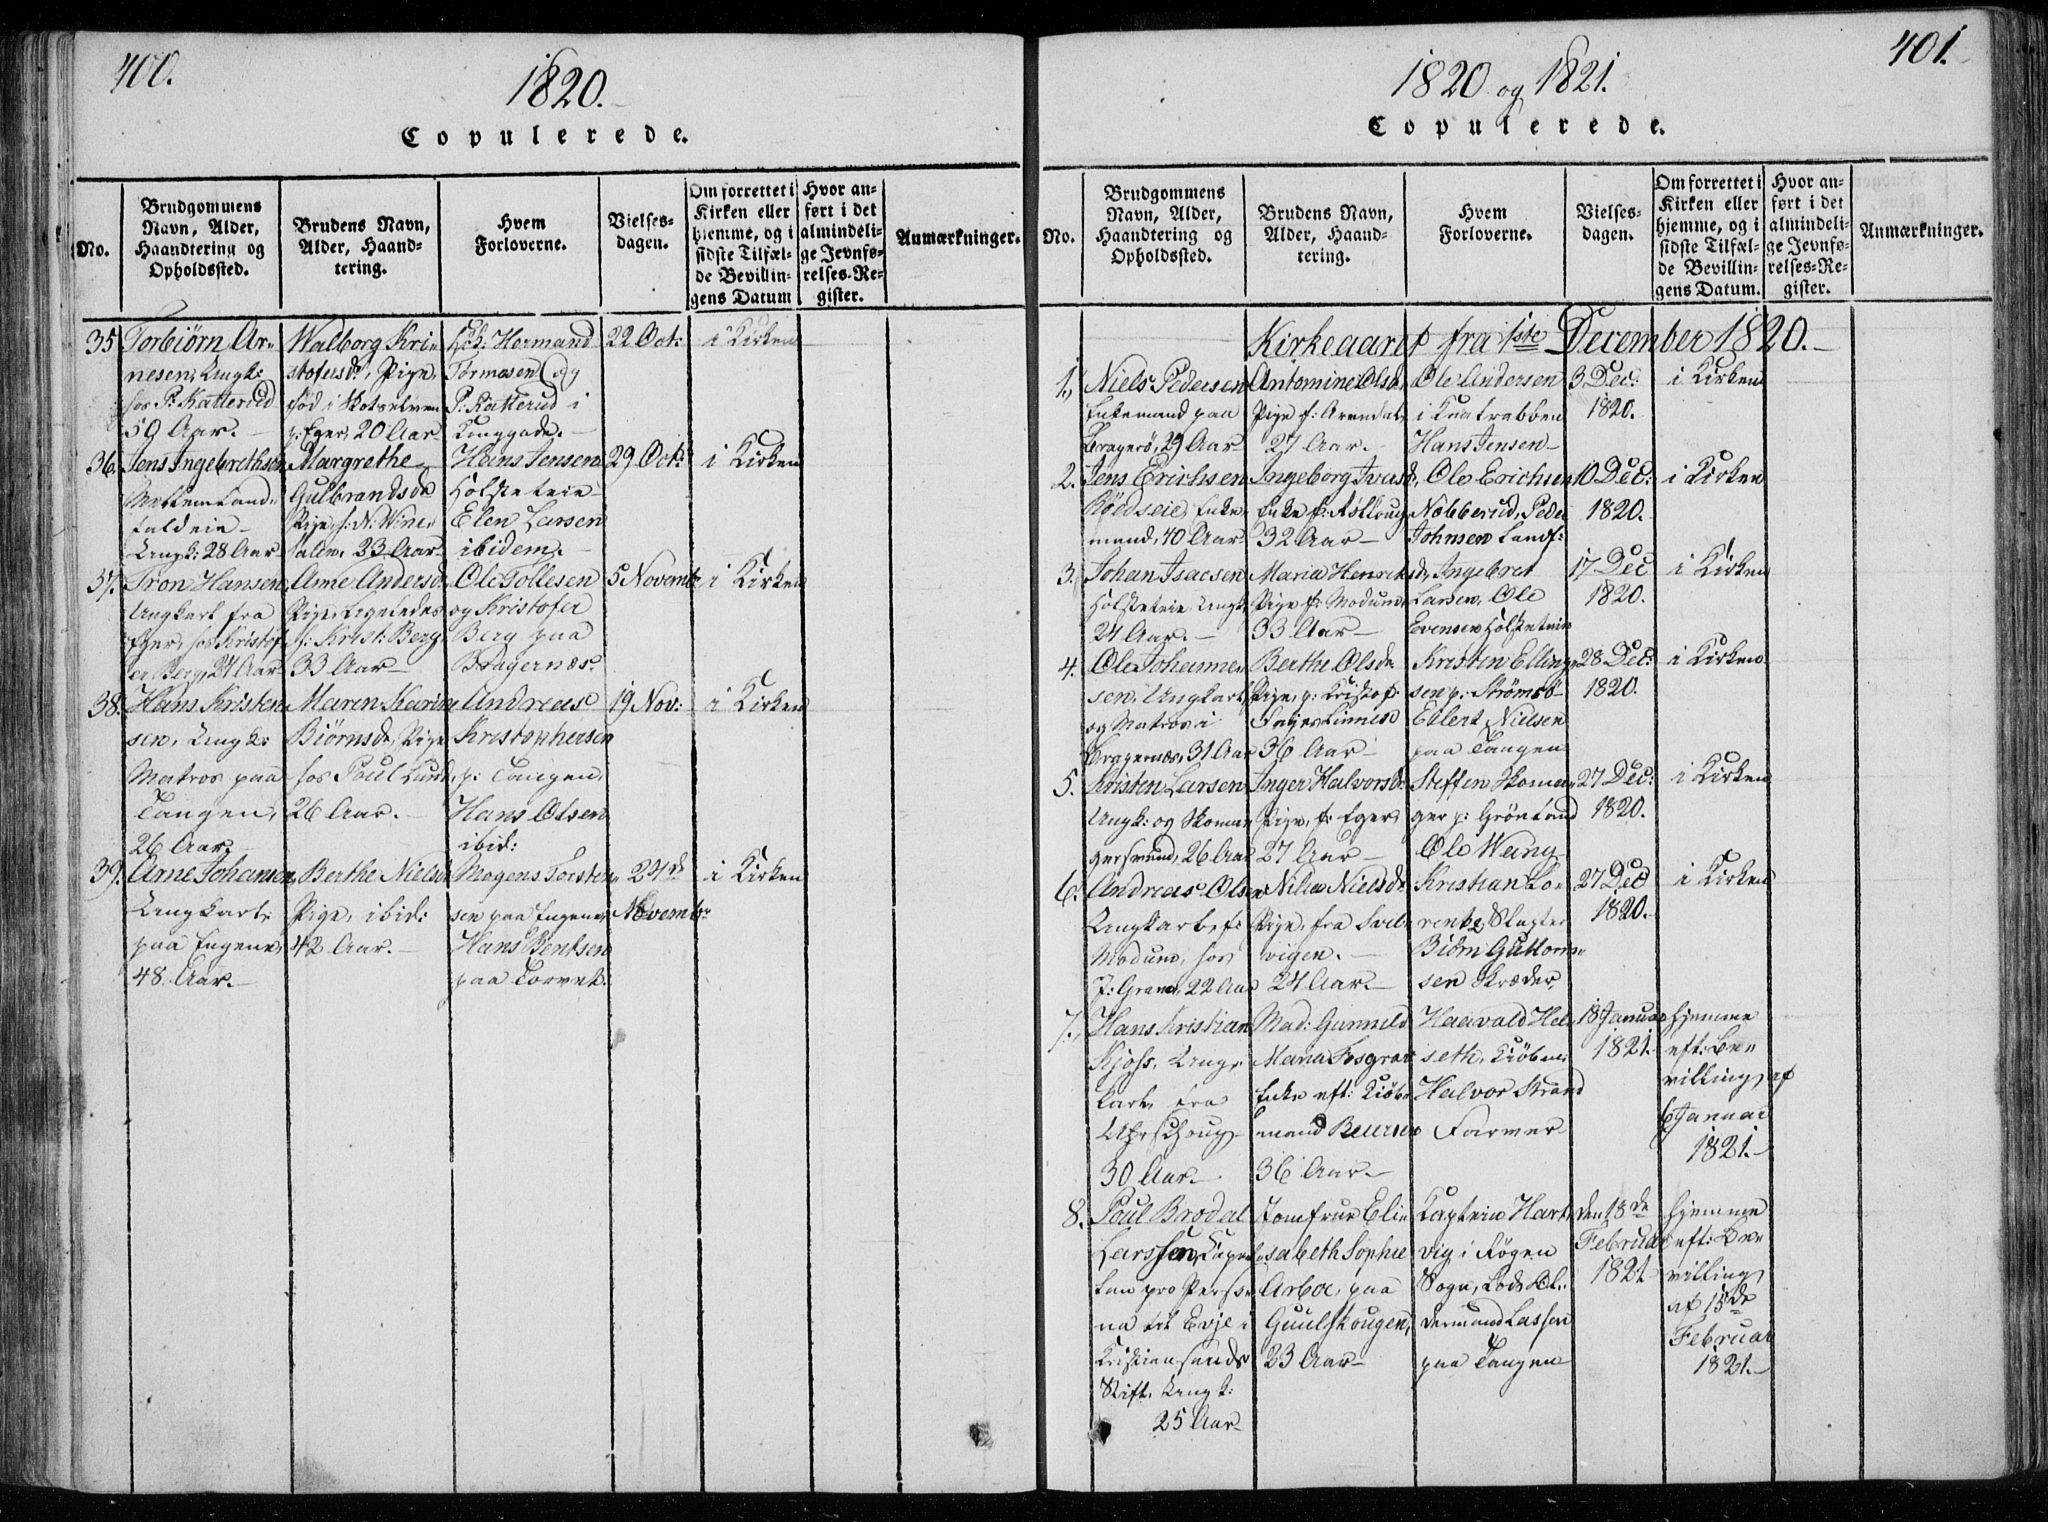 400.
1820.
Copulerede.
No.
Brudgommens
Navn, Alder,
Haandtering og
Opholdssted.
Brudens Navn,
Alder, Haand-
tering.
Hvem
Forloverne.
Vielses-
dagen.
Om forrettet i
Kirken eller
hjemme, og i
sidste Tilfæl-
de Bevillin-
gens Datum
Hvor an-
ført i det
almindeli-
ge Jevnfø-
relses-Re-
gister.
Anmærkninger.
35
Torbiørn Ar-
nesen, Ungk:
hos P: Katterud
59 Aar.
Walborg Kri-
stofersdr, Pige,
født i Skotselven
p: Eger, 20 Aar
Hermand
Tormosen og
P: Katterud i
22 Oct:
i Kirken
36.
Jens Ingebrethsen
Ungk: 28 Aar
Margrethe
Gulbrandsdr
Pige, 23 Aar
Hans Jensen
Holsteteie
Elen Larsen
ibidem.
29 Oct:
i Kirken
37.
Tron Hansen
Ungkarl fra
Eger, hos Kristof-
er Berg, 24 Aar
Anne Andersdr
Pige, ligeledes
h: Krist: Berg
33 Aar
Ole Tollesen
og Kristofer
Berg paa
Bragernæs.
5 Novemb:
i Kirken
38.
Hans Kristen-
sen, Ungk:
Matros paa
Tangen,
26 Aar.
Maren Karine
Biørnsdr, Pige
hos Poul Lund,
26 Aar.
Andreas
Kristophersen
p: Tangen,
Hans Olsen
ibid:
19 Nov:
i Kirken
39.
Arne Johansen,
Ungkarl
paa Engene,
48 Aar.
Berthe Nielsdr
Pige, ibid:
42 Aar.
Mogens Torsten-
sen paa Engene,
Hans Bentsen
paa Torvet.
24de
Novembr
i Kirken
401.
1820 og 1821.
Copulerede.
No.
Brudgommens
Navn, Alder,
Haandtering og
Opholdssted.
Brudens Navn,
Alder, Haand-
tering.
Hvem
Forloverne.
Vielses-
dagen.
Om forrettet i
Kirken eller
hjemme, og i
sidste Tilfæl-
de Bevillin-
gens Datum.
Hvor an-
ført i det
almindeli-
ge Jevnfø-
relses-Re-
gister.
Anmærkninger.
Kirkeaaret fra 1ste December 1820.
1.
Niels Pedersen
Enkemand paa
Bragerö, 29 Aar
Antomine Olsdr
Pige f: Arendal,
27 Aar.
Ole Andersen
i Knatrabben
Hans Jensen
3 Dec:
1820.
i Kirken
2.
Jens Erichsen
Röedseie, Enke-
mand, 40 Aar
Ingeborg Ivarsdr,
Enke f: Askloug
32 Aar
Ole Erichsen
Nøbberud, Peder
Johnsen Landf:
10 Dec:
1820.
i Kirken
3.
Johan Isacsen
Holsteteie Ungk,
24 Aar.
Maria Henriks-
Pige f: Modum,
33 Aar
dr, Ingebret
Larsen, Ole
Evensen Holsteteie
17 Dec
1820.
i Kirken
4.
Ole Johanne-
sen, Ungkarl
og Matros i
Bragernæs, 31 Aar
Berthe Olsdr
Pige, p: Kristof:
36 Aar
Kristen Elling-
sen p: Strömsö
Ehlert Nielsen
paa Tangen
28 Dec:
1820.
i Kirken
5.
Kristen Larsen
Ungk: og Skoma-
gersvend, 26 Aar
Inger Halvorsdr
Pige, f: Eger
27 Aar
Steffen Skoma-
ger p: Grönland
Ole Wang
27 Dec:
1820.
i Kirken
6.
Andreas Olsen
Ungkarl, f:
Modum, hos
J: Gram, 22 Aar
Nilia Nielsdr
Pige, fra Svel-
vigen.
24 Aar.
Kristian Lo-
rentz Slagter
Biörn Guttorm-
sen Skræder
27 Dec
1820.
i Kirken
7.
Hans Kristian
Kjoss, Ung-
karl fra
30 Aar.
Mad: Gunnild
Maria Fosgrav
Enke eft: Kiöb-
mand
36 Aar.
Haavald Hel-
seth, Kiöbm:
Halvor Strand
Farver
18 Januar
1821.
hjemme
eft: Be-
villing af
6 Januar
1821.
8.
Poul Brodal
Larssen, Capel-
lan pro Perso-
na til Evje i
Kristiansands
Stift, Ungk:
25 Aar
Jomfrue Eli-
sabeth Sophie
Arboe, paa
Guulskougen,
23 Aar
Captein Hart-
vig i Røgen
Sogn, Lods Ol-
dermand Lassen
paa Tangen
den 18de
Februar
1821
hjemme
eft: Be-
villing
af 15de
Februar
1821.